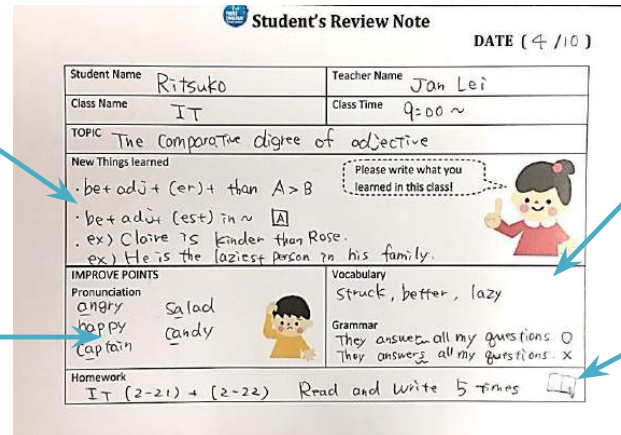 Student's Review Note
DATE ( 4 /10 )
Student Name Ritsuko
Teacher Name Jan Lei
Class Name IT
Class Time 9:00 ~
TOPIC The Comparative digree of adjective
New Things learned
Please write what you
learned in this class!
・be + adj + (er) + than A > B
・be + adj + (est) in ~ A
・ex) Claire is kinder than Rose.
ex) He is the laziest person in his family.
IMPROVE POINTS
Pronunciation
angry salad
happy candy
captain
Vocabulary
struck, better, lazy
Grammar
They answer all my questions. O
They answers all my questions. X
Homework
IT (2-21) + (2-22) Read and write 5 times